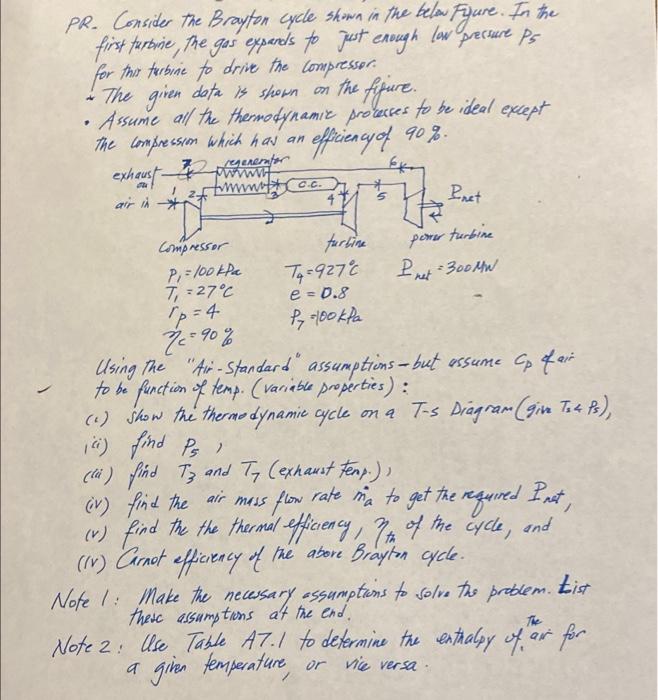 PR. Consider the Brayton cycle shown in the below Figure. In the
first turbine, the gas expands to just enough low pressure P5
for this turbine to drive the compressor.
- The given data is shown on the figure.
• Assume all the thermodynamic processes to be ideal except
the compression which has an efficiency of 90%.
7 regenerator 6
exhaust
out
air in 1 2 3 C.C. 4 5 Pnet
compressor turbine power turbine
P1 = 100 kPa T4 = 927°C Pnet = 300 MW
T1 = 27°C e = 0.8
rp = 4 P7 = 100 kPa
ηc = 90%
Using the "Air-Standard" assumptions - but assume Cp of air
to be function of temp. (variable properties) :
(i) Show the thermodynamic cycle on a T-s Diagram (give Ts & Ps),
(ii) find P5,
(iii) find T3 and T7 (exhaust temp.),
(iv) find the air mass flow rate ṁa to get the required Pnet,
(v) find the the thermal efficiency, ηth of the cycle, and
(iv) Carnot efficiency of the above Brayton cycle.
Note 1: Make the necessary assumptions to solve the problem. List
these assumptions at the end.
Note 2: Use Table A7.1 to determine the enthalpy of The air for
a given temperature, or vice versa.